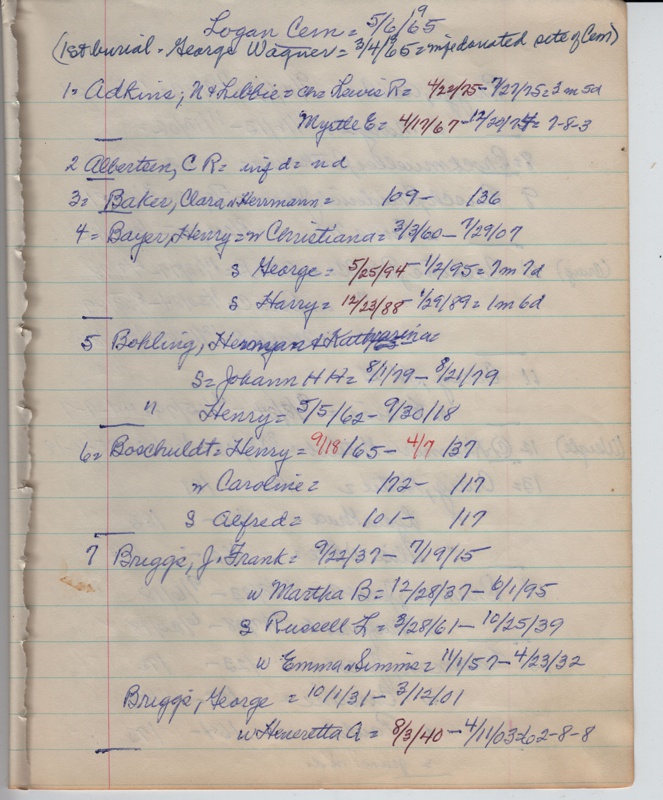 Logan Cem = 5/6/65
9
(1st burial - George Wagner = 3/4/65 = inf donated site of Cem)
1 = Adkins; N & Libbie = ch = Lewis R = 4/22/75 - 7/27/75 = 3 m 5d
Myrtle E = 4/17/67 - 12/20/74 = 7-8-3
2 Albertsen, C R = inf d = nd
3 = Baker, Clara w Herrmann = 109 - /36
4 = Bayer, Henry = w Christiana = 3/3/60 - 7/29/07
s George = 5/25/94 - 1/2/95 = 7m 7d
s Harry = 12/23/88 - 1/29/89 = 1m 6d
5 Bohling, Herman & Katharina
S = Johann H H = 8/1/79 - 8/21/79
" Henry = 5/5/62 - 9/30/18
6 = Boschuldt = Henry = 9/18/65 - 4/7/37
w Caroline = /72 - /17
S Alfred = 101 - /17
7 Briggs, J. Frank = 9/22/37 - 7/19/15
w Martha B = 12/28/37 - 6/1/95
S Russell L = 3/28/61 - 10/25/39
w Emma Simms = 11/1/57 - 4/23/32
Briggs, George = 10/1/31 - 3/12/01
w Heneretta A = 8/3/40 - 4/11/03 = 62-8-8